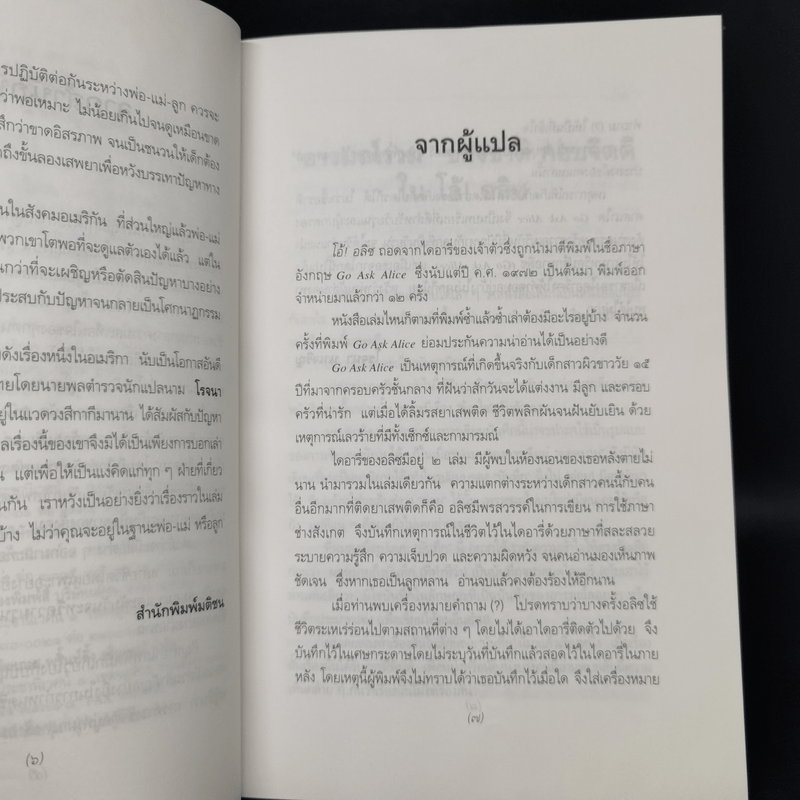 รปฏิบัติต่อกันระหว่างพ่อ-แม่-ลูก ควรจะ
ว่าพอเหมาะ ไม่น้อยเกินไปจนดูเหมือนขาด
สึกว่าขาดอิสรภาพ จนเป็นชนวนให้เด็กต้อง
ถึงขั้นลองเสพยาเพื่อหวังบรรเทาปัญหาทาง
นในสังคมอเมริกัน ที่ส่วนใหญ่แล้วพ่อ-แม่
พวกเขาโตพอที่จะดูแลตัวเองได้แล้ว แต่ใน
นกว่าที่จะเผชิญหรือตัดสินปัญหาบางอย่าง
ประสบกับปัญหาจนกลายเป็นโศกนาฏกรรม
ดังเรื่องหนึ่งในอเมริกา นับเป็นโอกาสอันดี
ทยโดยนายพลตำรวจนักแปลนาม โรจนา
อยู่ในแวดวงสีกากีมานาน ได้สัมผัสกับปัญหา
ลเรื่องนี้ของเขาจึงมิได้เป็นเพียงการบอกเล่า
น แต่เพื่อให้เป็นแง่คิดแก่ทุก ๆ ฝ่ายที่เกี่ยว
นกัน เราหวังเป็นอย่างยิ่งว่าเรื่องราวในเล่ม
บ้าง ไม่ว่าคุณจะอยู่ในฐานะพ่อ-แม่ หรือลูก
สำนักพิมพ์มติชน
(๖)
จากผู้แปล
โอ้! อลิซ ถอดจากไดอารี่ของเจ้าตัวซึ่งถูกนำมาตีพิมพ์ในชื่อภาษา
อังกฤษ Go Ask Alice ซึ่งนับแต่ปี ค.ศ. ๑๙๗๒ เป็นต้นมา พิมพ์ออก
จำหน่ายมาแล้วกว่า ๑๒ ครั้ง
หนังสือเล่มไหนก็ตามที่พิมพ์ซ้ำแล้วซ้ำเล่าต้องมีอะไรอยู่บ้าง จำนวน
ครั้งที่พิมพ์ Go Ask Alice ย่อมประกันความน่าอ่านได้เป็นอย่างดี
Go Ask Alice เป็นเหตุการณ์ที่เกิดขึ้นจริงกับเด็กสาวผิวขาววัย ๑๕
ปีที่มาจากครอบครัวชั้นกลาง ที่ฝันว่าสักวันจะได้แต่งงาน มีลูก และครอบ
ครัวที่น่ารัก แต่เมื่อได้ลิ้มรสยาเสพติด ชีวิตพลิกผันจนฝันยับเยิน ด้วย
เหตุการณ์เลวร้ายที่มีทั้งเซ็กซ์และกามารมณ์
ไดอารี่ของอลิซมีอยู่ ๒ เล่ม มีผู้พบในห้องนอนของเธอหลังตายไม่
นาน นำมารวมในเล่มเดียวกัน ความแตกต่างระหว่างเด็กสาวคนนี้กับคน
อื่นอีกมากที่ติดยาเสพติดก็คือ อลิซมีพรสวรรค์ในการเขียน การใช้ภาษา
ช่างสังเกต จึงบันทึกเหตุการณ์ในชีวิตไว้ในไดอารี่ด้วยภาษาที่สละสลวย
ระบายความรู้สึก ความเจ็บปวด และความผิดหวัง จนคนอ่านมองเห็นภาพ
ชัดเจน ซึ่งหากเธอเป็นลูกหลาน อ่านจบแล้วคงต้องร้องไห้อีกนาน
เมื่อท่านพบเครื่องหมายคำถาม (?) โปรดทราบว่าบางครั้งอลิซใช้
ชีวิตระเหเร่ร่อนไปตามสถานที่ต่าง ๆ โดยไม่ได้เอาไดอารี่ติดตัวไปด้วย จึง
บันทึกไว้ในเศษกระดาษโดยไม่ระบุวันที่บันทึกแล้วสอดไว้ในไดอารี่ในภาย
หลัง โดยเหตุนี้ผู้พิมพ์จึงไม่ทราบได้ว่าเธอบันทึกไว้เมื่อใด จึงใส่เครื่องหมาย
(๗)